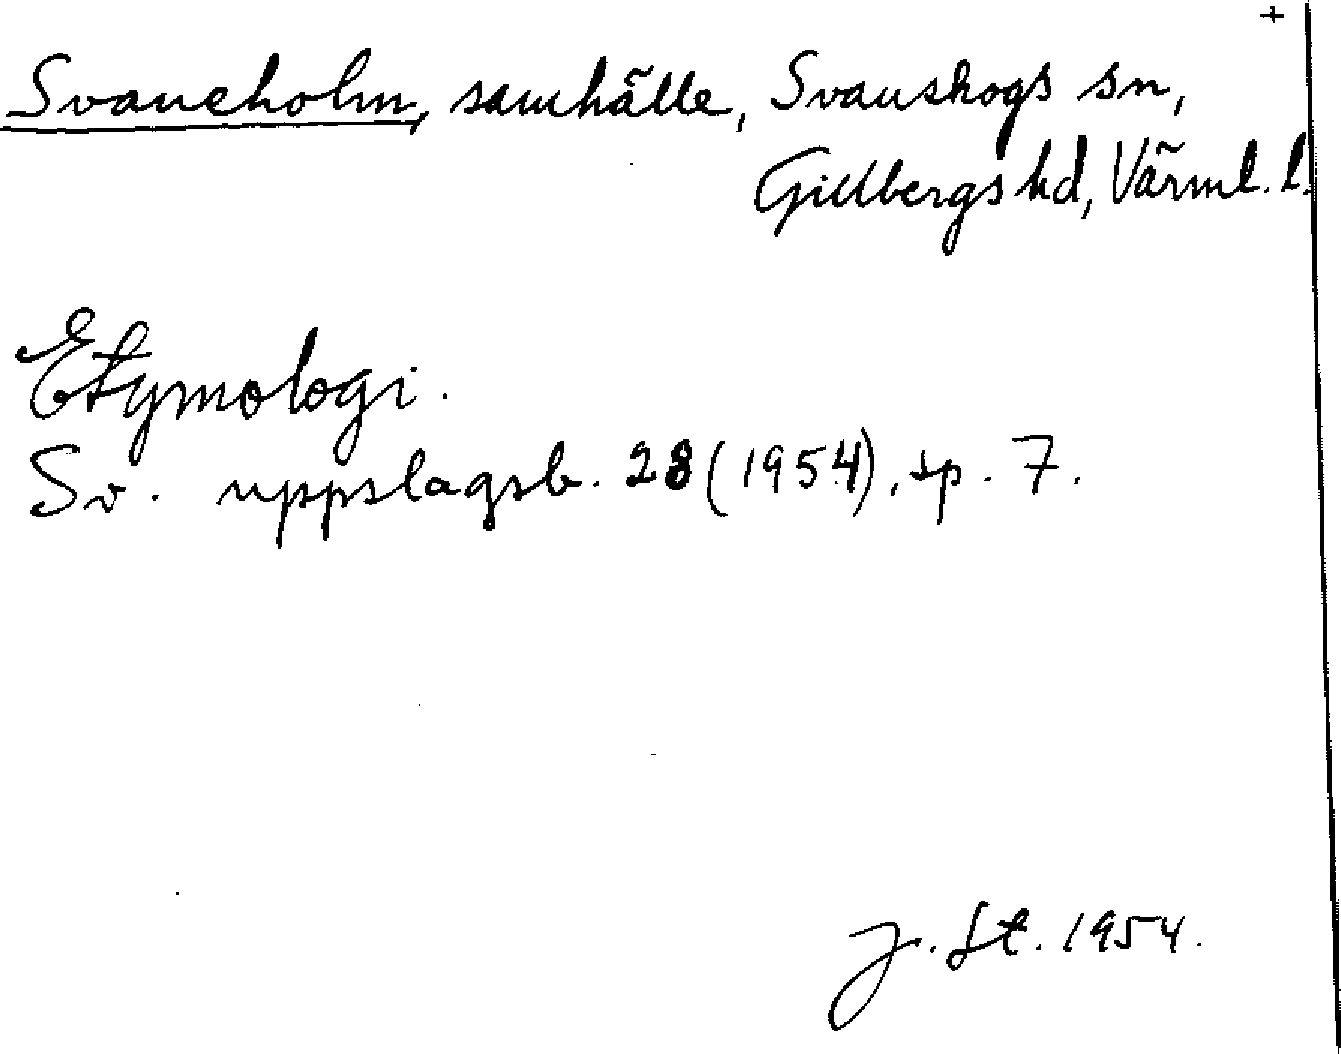 +
Svaneholm, samhälle, Svanskogs sn,
Gillbergs hd, Värml. l.
Etymologi.
Sv. uppslagsb. 28 (1954), sp. 7.
J. St. 1954.